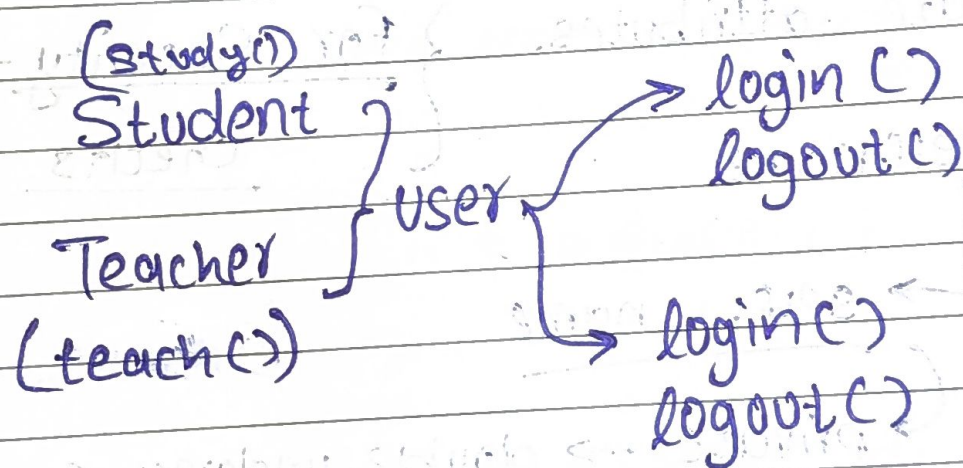 (study())
Student
Teacher
(teach())
user
login()
logout()
login()
logout()